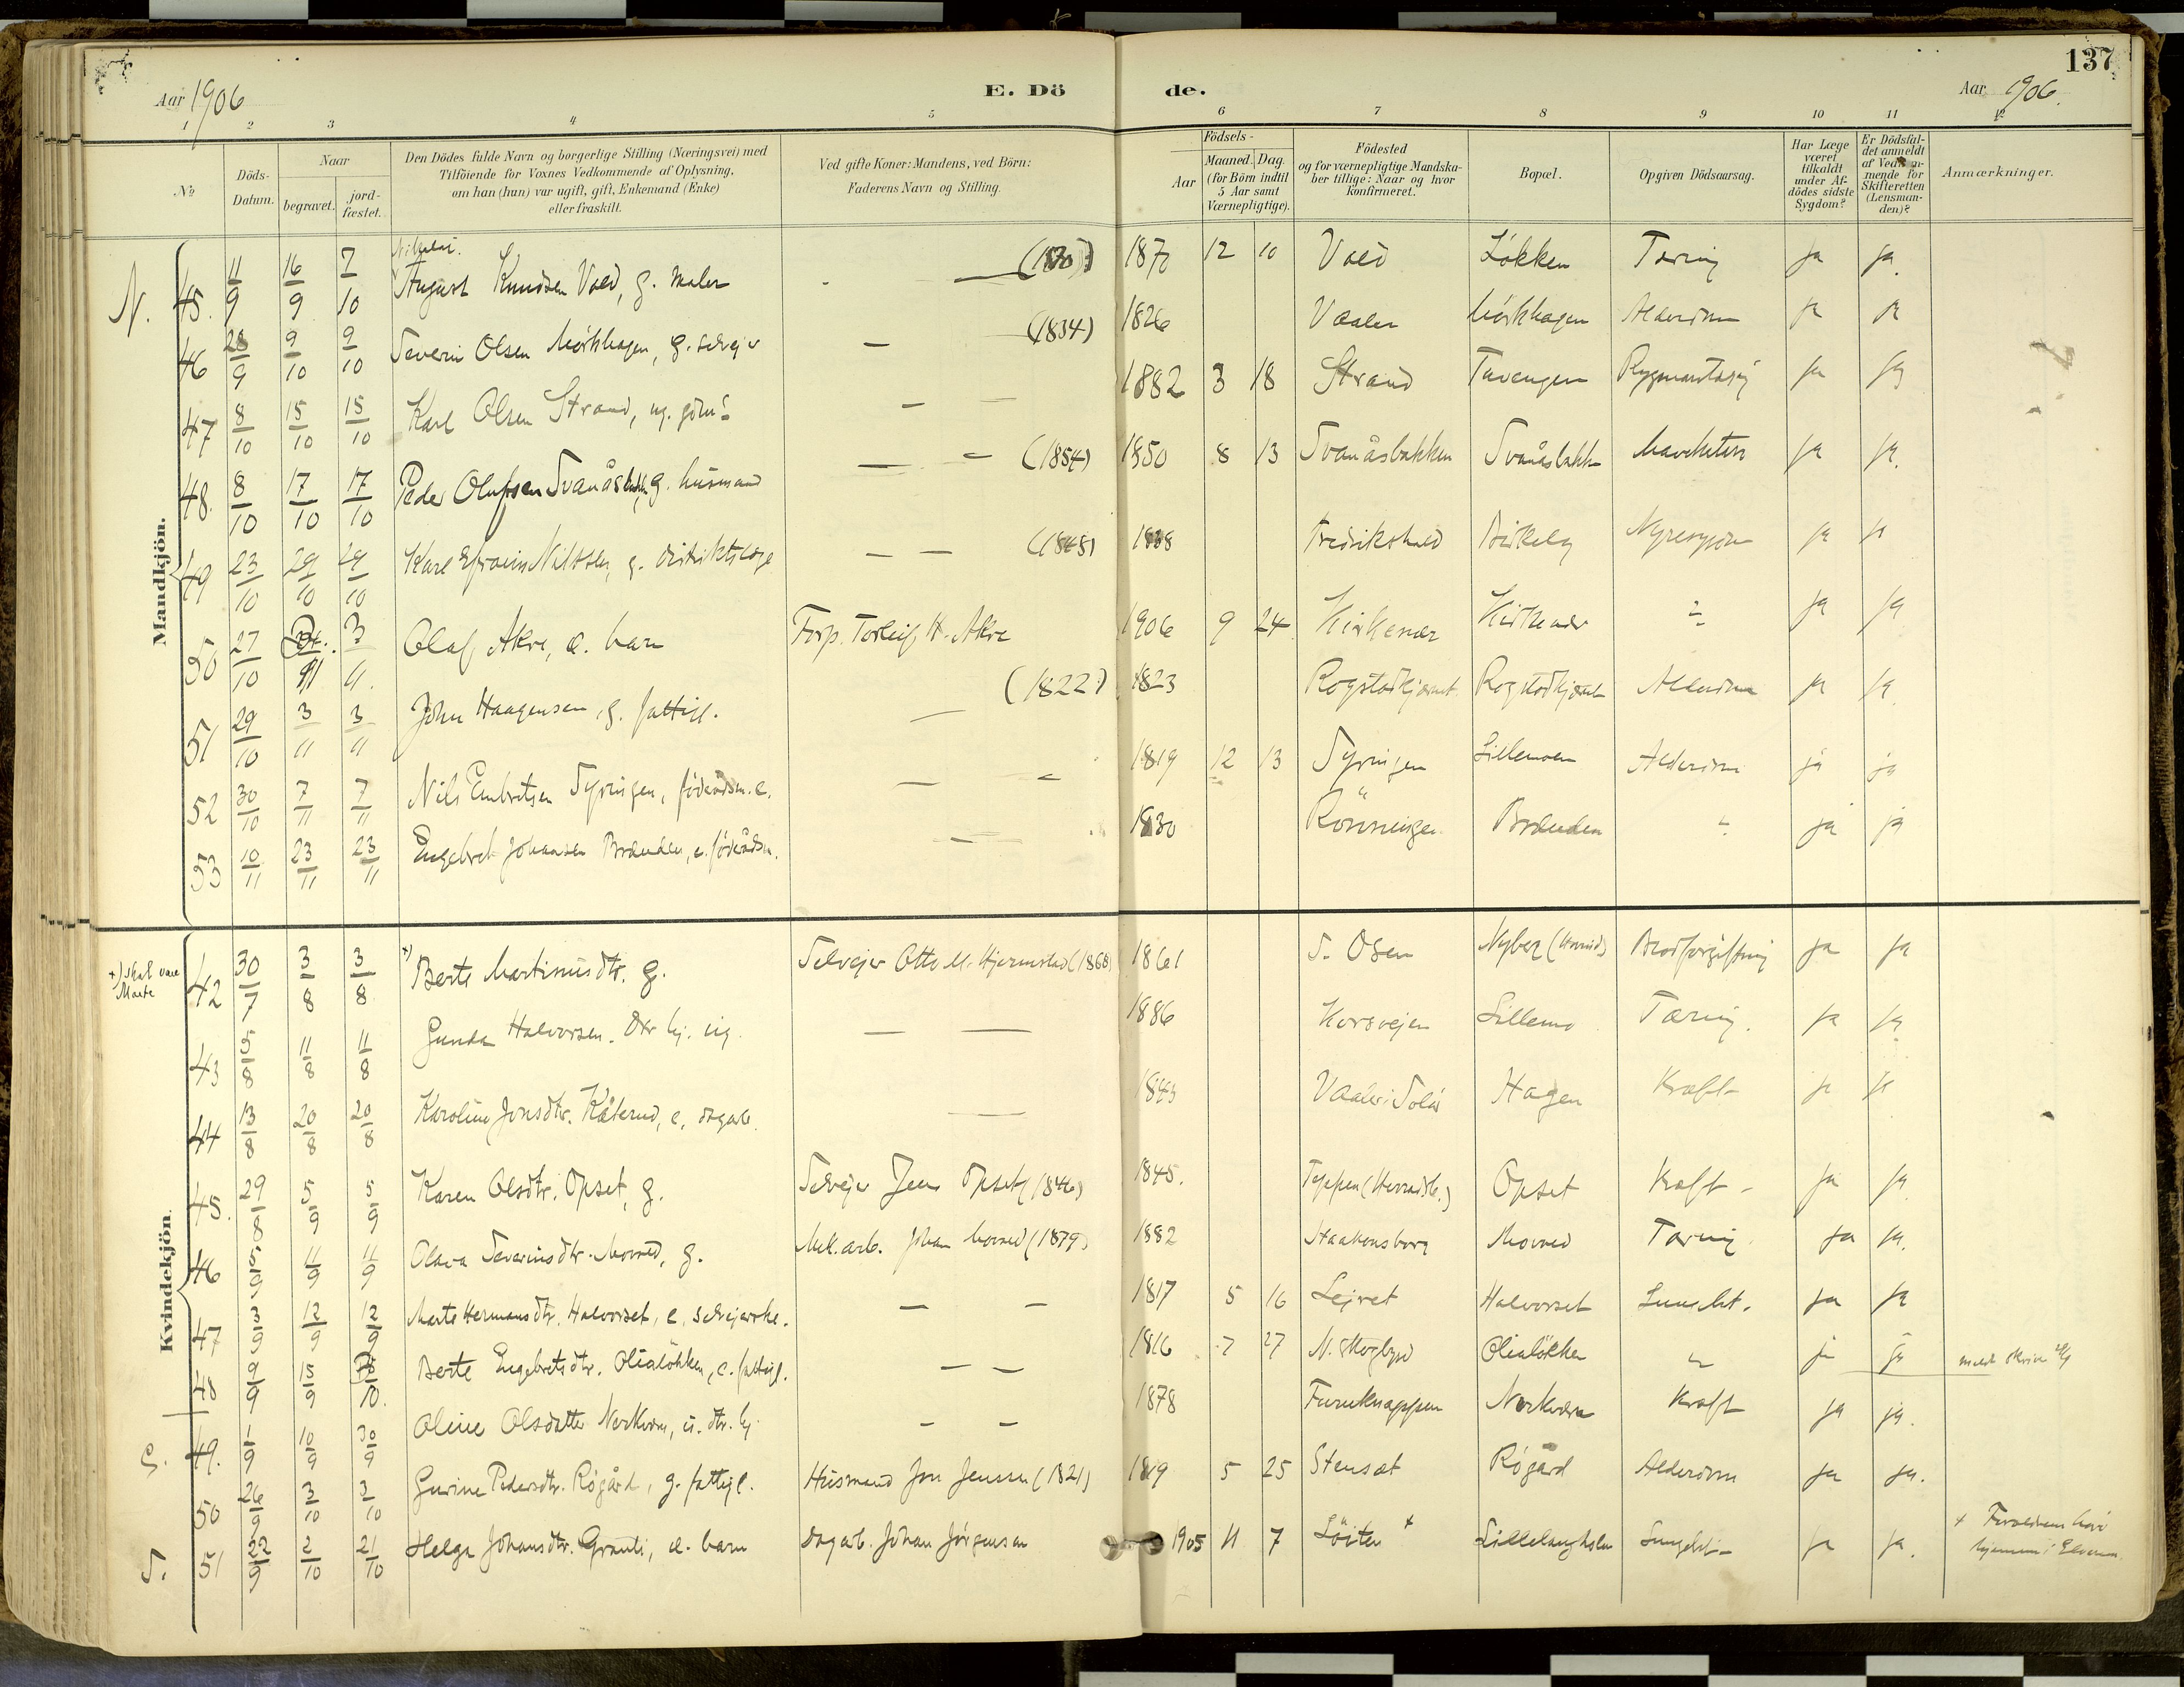 137
Aar 1906
E. Dö de.
Aar 1906.
1 2 3 4 5 6 7 8 9 10 11 12
No
Döds-Datum.
Naar
begravet.
jord-fæstet.
Den Dödes fulde Navn og borgerlige Stilling (Næringsvei) med
Tilföiende for Voxnes Vedkommende af Oplysning,
om han (hun) var ugift, gift, Enkemand (Enke)
eller fraskilt.
Ved gifte Koner: Mandens, ved Börn:
Faderens Navn og Stilling.
Födsels-
Aar
Maaned. Dag.
(for Börn indtil
5 Aar samt
Værnepligtige).
Födested
og for værnepligtige Mandska-
ber tillige: Naar og hvor
konfirmeret.
Bopæl.
Opgiven Dödsaarsag.
Har Læge
været
tilkaldt
under Af-
dödes sidste
Sygdom?
Er Dödsfal-
det anmeldt
af Vedkom-
mende for
Skifteretten
(Lensman-
den)?
Anmærkninger.
Mandkjön.
N. 45. 11/9 16/9 7/10 August Knudsen Vold, g. maler — (1870) 1870 12 10 Vold Løkken Tæring ja ja.
46 28/9 9/10 9/10 Severin Olsen Mørkhagen, g. selvejer — (1834) 1826 Vaaler Mørkhagen Alderdom ja ja
47 8/10 15/10 15/10 Karl Olsen Strand, ug. — — 1882 3 18 Strand Tuvengen ja ja
48. 8/10 17/10 17/10 Peder Olufsen Svanåsbakk, g. husmand — — (1854) 1850 8 13 Svanåsbakken Svanåsbakk Mavekatarr ja ja.
49 23/10 29/10 29/10 Karl Efraim Nilssen, g. distriktslæge — — (1848) Fredrikshald Birkely Nyresygdom ja ja
50 27/10 3/11. Olaf Akre, e. barn Forp. Torleif H. Akre 1906 9 24 Kirkenær Kirkenær ja ja
51 29/10 3/11 3/11 John Haagensen, g. fattigl. — (1822) 1823 Rogstadkjærnet Rogstadkjærnet Alderdom ja ja.
52 30/10 7/11 7/11 Nils Embretsen Syringen, føderådsm. e. — — 1819 12 13 Syringen Lillemoen Alderdom ja ja
53 10/11 23/11 23/11 Engebret Johansen Brænden, e. føderådsm. — 1830 Rönningen Brænden " ja ja
Kvindekjön.
+) skal være
Marte
42 30/7 3/8 3/8 +) Berte Martinusdtr. g. Selvejer Otto M. Hjermstad (1868) 1861 S. Osen Nyberg Blodforgiftning ja ja
43 5/8 11/8 11/8 Gunda Halvorsen. Dtr hj. ug. — — 1886 Korsvejen Lillemo Tæring. ja ja.
44 13/8 20/8 20/8 Karoline Jonsdtr. Kåterud, e. dagarb. — 1843 Vaaler i Solør Hagen Kræft ja ja
45. 29/8 5/9 5/9 Karen Olsdtr. Opset, g. Selvejer Jens Opset (1846) 1845. Teppen Opset Kræft – ja ja.
46 5/9 11/9 11/9 Olava Severinsdtr. Moved, g. Mek. arb. Johan Moved (1879) 1882 Haakonsborg Moved Tæring ja ja.
47 3/9 12/9 12/9 Marte Hermansdtr. Halvorset, e. selvejerske. — — 1817 5 16 Lejret Halvorset Lungebet. ja ja
48 9/9 15/9 /10. Berte Engebretsdtr. Olialökken, e. fattigl. — — 1816 7 27 N. Skogbygd Olialökken " ja ja
S. 49. 1/9 10/9 30/9 Oline Olsdatter Norkvern, ú. dtr. hj. — — 1878 Furuknappen Norkvern Kræft ja ja.
50 26/9 3/10 3/10 Gurine Pedersdtr. Rögård, g. fattigl. Husmand Jon Jenssen (1821) 1819 5 25 Stensæt Rögård Alderdom ja ja.
S. 51 22/9 2/10 21/10 Helga Johansdtr. Granli, e. barn Dagarb. Johan Jørgensen 1905 11 7 Löiten + Lillelangholen Lungebet – ja ja. + Forældrens
hjemme i Elverum